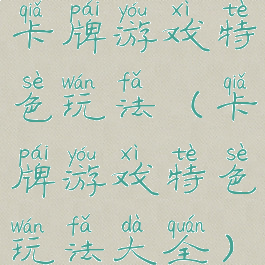 qiǎ pái yóu xì tè
卡牌游戏特
sè wán fǎ qiǎ
色玩法（卡
pái yóu xì tè sè
牌游戏特色
wán fǎ dà quán
玩法大全）